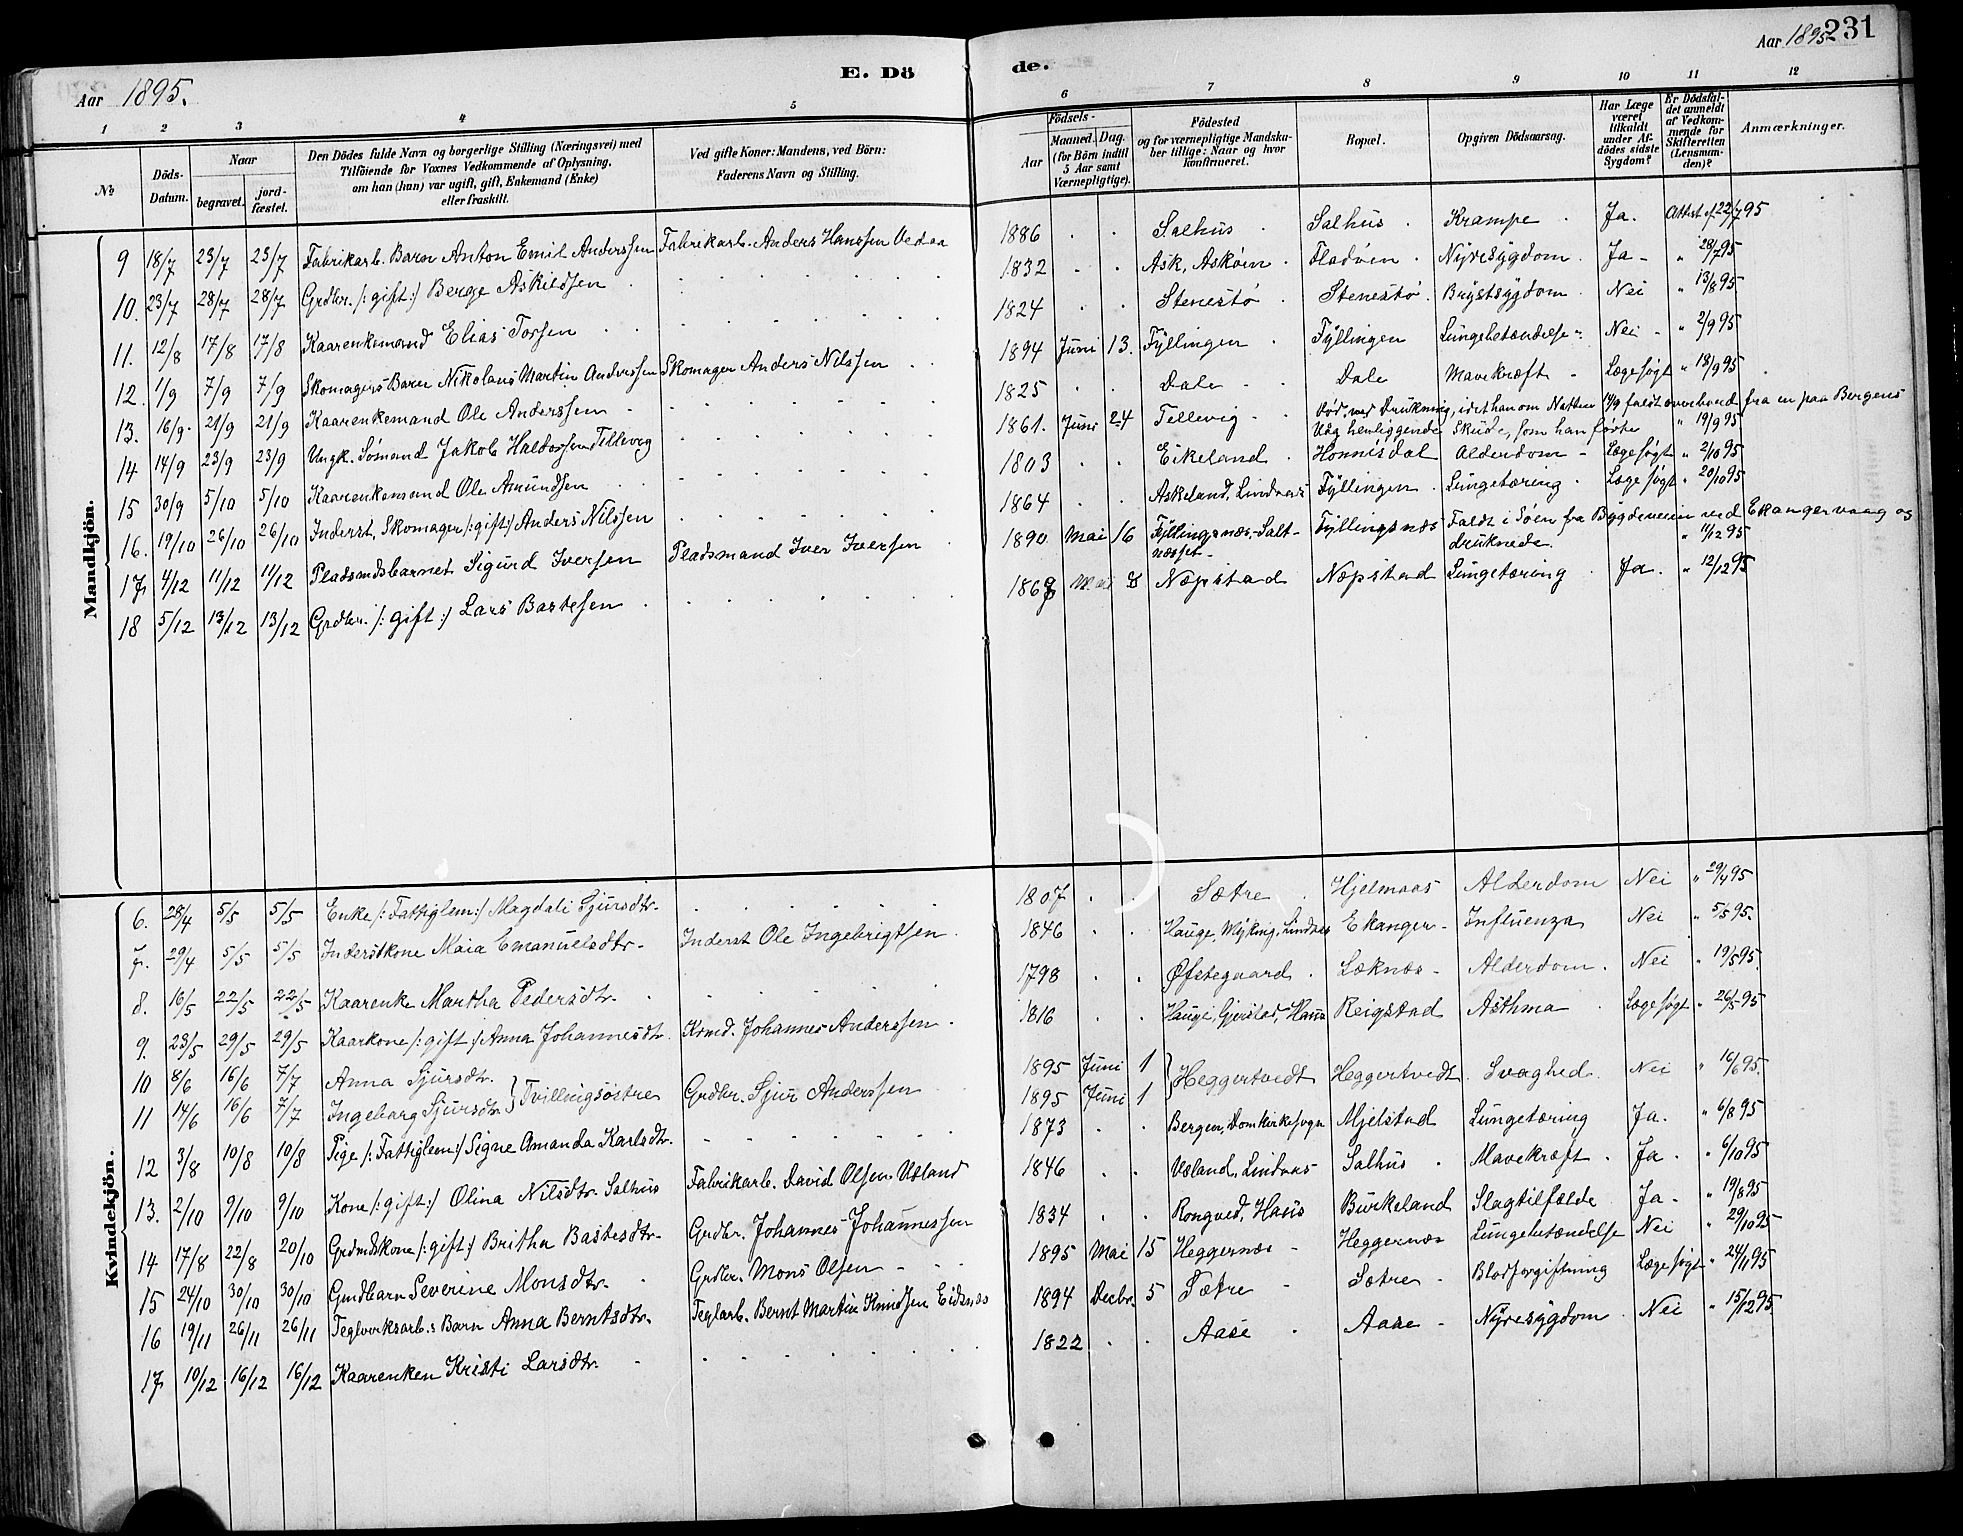 Aar 1895.
E. Dö
de.
Aar 1895
231
1 2 3 4 5 6 7 8 9 10 11 12
№
Döds-Datum.
Naar
begravet.
jord-fæstet.
Den Dödes fulde Navn og borgerlige Stilling (Næringsvei) med
Tilföiende for Voxnes Vedkommende af Oplysning,
om han (hun) var ugift, gift, Enkemand (Enke)
eller fraskilt.
Ved gifte Koner: Mandens, ved Börn:
Faderens Navn og Stilling.
Födsels-
Aar
Maaned. Dag.
(for Börn indtil
5 Aar samt
Værnepligtige).
Födested
og for værnepligtige Mandska-
ber tillige: Naar og hvor
konfirmeret.
Bopæl.
Opgiven Dödsaarsag.
Har Læge
været
tilkaldt
under Af-
dödes sidste
Sygdom?
Er Dödsfal-
det anmeldt
af Vedkom-
mende for
Skifteretten
(Lensman-
den)?
Anmærkninger.
Mandkjön.
9 18/7 23/7 23/7 Fabrikarb. Barn Anton Emil Anderssen Fabrikarb. Anders Hanssen Vedaa 1886 Salhus Salhus Krampe Ja. Attest af 22/7 95
10. 23/7 28/7 28/7 Grdbr. /: gift :/ Berge Askildsen 1832 Ask, Askøen Fladøen Nyresygdom Ja - " 28/7 95
11. 12/8 17/8 17/8 Kaarenkemand Elias Torsen 1824 Stenestø Stenestø Brystsygdom Nei " 13/8 95
12. 1/9 7/9 7/9 Skomagers Barn Nikolaus Martin Anderssen Skomager Anders Nilssen 1894 Juni 13. Fyllingen Fyllingen Lungebetændelse Nei - " 2/9 95
13. 16/9 21/9 21/9 Kaarenkemand Ole Anderssen 1825 Dale Dale Mavekræft Læge søgt " 18/9 95
14 14/9 23/9 23/9 Ungk. Sømand Jakob Haldorsen Tellevig 1861. Juni 24 Tellevig Død ved Drukning, idet han om Natten 14/9 faldt overbord fra en paa Bergens
Vaag henliggende Skude, som han førte " 19/9 95
15 30/9 5/10 5/10 Kaarenkemand Ole Amundsen 1803 Eikeland Honnisdal Alderdom - Læge søgt " 2/10 95
16. 19/10 26/10 26/10 Inderst, Skomager /: gift :/ Anders Nilssen 1864 Askeland, Lindaas Fyllingen Lungetæring Læge søgt " 20/10 95
17 4/12 11/12 11/12 Pladsmdsbarnet Sigurd Iversen Pladsmand Iver Iversen 1890 Mai 16 Fyllingsnæs-Salt-
næsset - Fyllingsnæs Faldt i Søen fra Bygdeveien ved Ekangervaag og
druknede. " 11/12 95
18 5/12 13/12 13/12 Grdbr. /: gift :/ Lars Bastesen Mai 8 Næpstad Næpstad Lungetæring Ja. " 12/12 95
Kvindekjön.
6. 28/4 5/5 5/5 Enke /: Fattiglem :/ Magdali Sjursdtr. 1807 Sætre Hjelmaas Alderdom Nei " 29/4 95
7. 29/4 5/5 5/5 Inderstkone Maia Emanuelsdtr. Inderst Ole Ingebrigtsen 1846 Hauge, Myking, Lindaas Ekanger Influenza Nei " 5/5 95.
8. 16/5 22/5 22/5 Kaarenke Martha Pedersdtr. 1798 Øfstegaard Læknæs Alderdom Nei " 19/5 95.
9. 23/5 29/5 29/5 Kaarkone /: gift :/ Anna Johannesdtr. Krmd. Johannes Anderssen 1816 Hauge, Gjerstad, Haus Reigstad Asthma Læge søgt " 26/5 95
10 8/6 16/6 7/7 Anna Sjursdtr. 1895 Juni 1
11 14/6 16/6 7/7 Ingeborg Sjursdtr. } Tvillingsøstre Grdbr. Sjur Anderssen 1895 Juni 1 } Heggertvedt Heggertvedt Svaghed Nei " 16/6 95.
12 3/8 10/8 10/8 Pige /: Fattiglem :/ Signe Amanda Karlsdtr. 1873 Bergen, Domkirkesogn Mjelstad Lungetæring Ja. " 6/8 95
13. 2/10 9/10 9/10 Kone /: gift :/ Olina Nilsdtr. Salhus Fabrikarb. David Olsen Utland 1846 Lindaas Salhus Mavekræft Ja. " 6/10 95
14 17/8 22/8 20/10 Grdmdskone /: gift :/ Britha Bastesdtr. Grdbr. Johannes Johannessen 1834 Rongved, Haus Burkeland Slagtilfælde Ja. " 19/8 95
15 24/10 30/10 30/10 Grmdbarn Severine Monsdtr. Grdbr. Mons Olsen 1895 Mai 15 Heggernæs Heggernæs Lungebetændelse Nei " 29/10 95
16 19/11 26/11 26/11 Teglverksarb.s Barn Anna Berntsdtr. Teglarb. Bernt Martin Knudsen Eidsnæs 1894 Decbr. 5 Sætre Sætre Blodforgiftning Læge søgt " 24/11 95
17 10/12 16/12 16/12 Kaarenken Kristi Larsdtr. 1822 Aase Aase Nyresygdom Nei " 15/12 95.